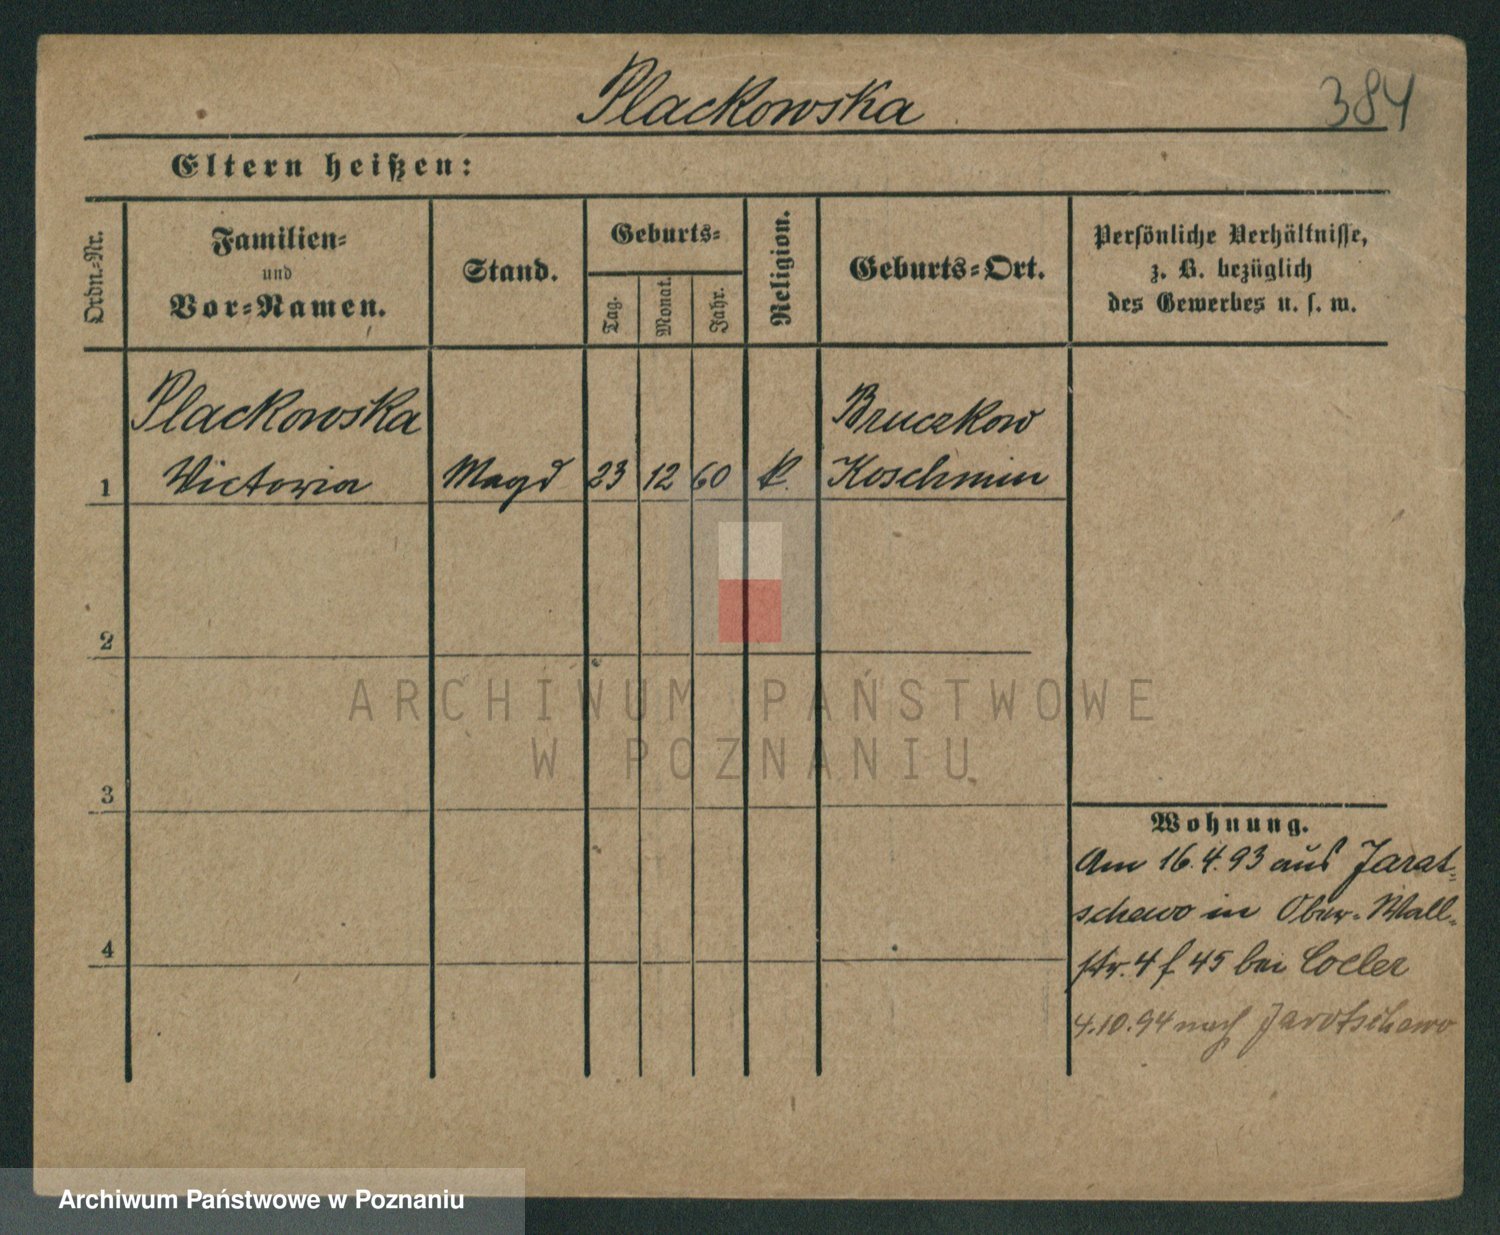 Plackowska
384
Eltern heißen:
Ordn.-Nr.
Familien-
und
Vor-Namen.
Stand.
Geburts-
Tag.
Monat.
Jahr.
Religion.
Geburts-Ort.
Persönliche Verhältnisse,
z. B. bezüglich
des Gewerbes u. s. w.
Plackowska
Bruczkow
1 Victoria Magd 23 12 60 k. Koschmin
2
3
4
Wohnung.
Am 16.4.93 aus Jarat-
schewo in Ober-Wall-
str. 4 f 45 bei
4.10.94 nach Jarotschewo
ARCHIWUM PAŃSTWOWE
W POZNANIU
Archiwum Państwowe w Poznaniu